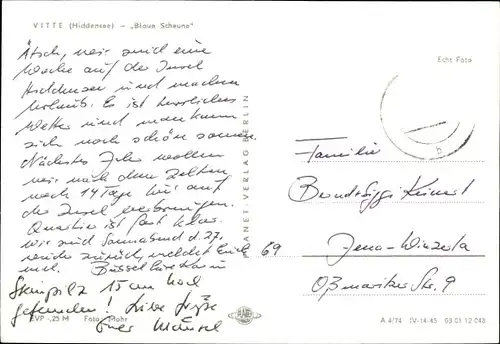 VITTE (Hiddensee) – „Blaue Scheune"
Ätsch, wir sind eine
Woche auf der Insel
Hiddensee und machen
Urlaub. Es ist herrliches
Wetter und man kann
sich noch schön sonnen.
Nächstes Jahr wollen
wir nach dem Zelten
noch 14 Tage hier auf
der Insel verbringen.
Quartier ist fast klar.
Wir sind Sonnabend d. 27.
wieder zurück, meldet Euch
mal.
Steinpilz 15 cm hoch
gefunden! Liebe Grüße
Eure Mäusel
EVP -,25 M Foto: Mohr
PLANET-VERLAG BERLIN
Echt Foto
b
Familie
69 Jena-Winzerla
Oßmaritzer Str. 9
A 4/74 IV-14-45 03 01 12 048